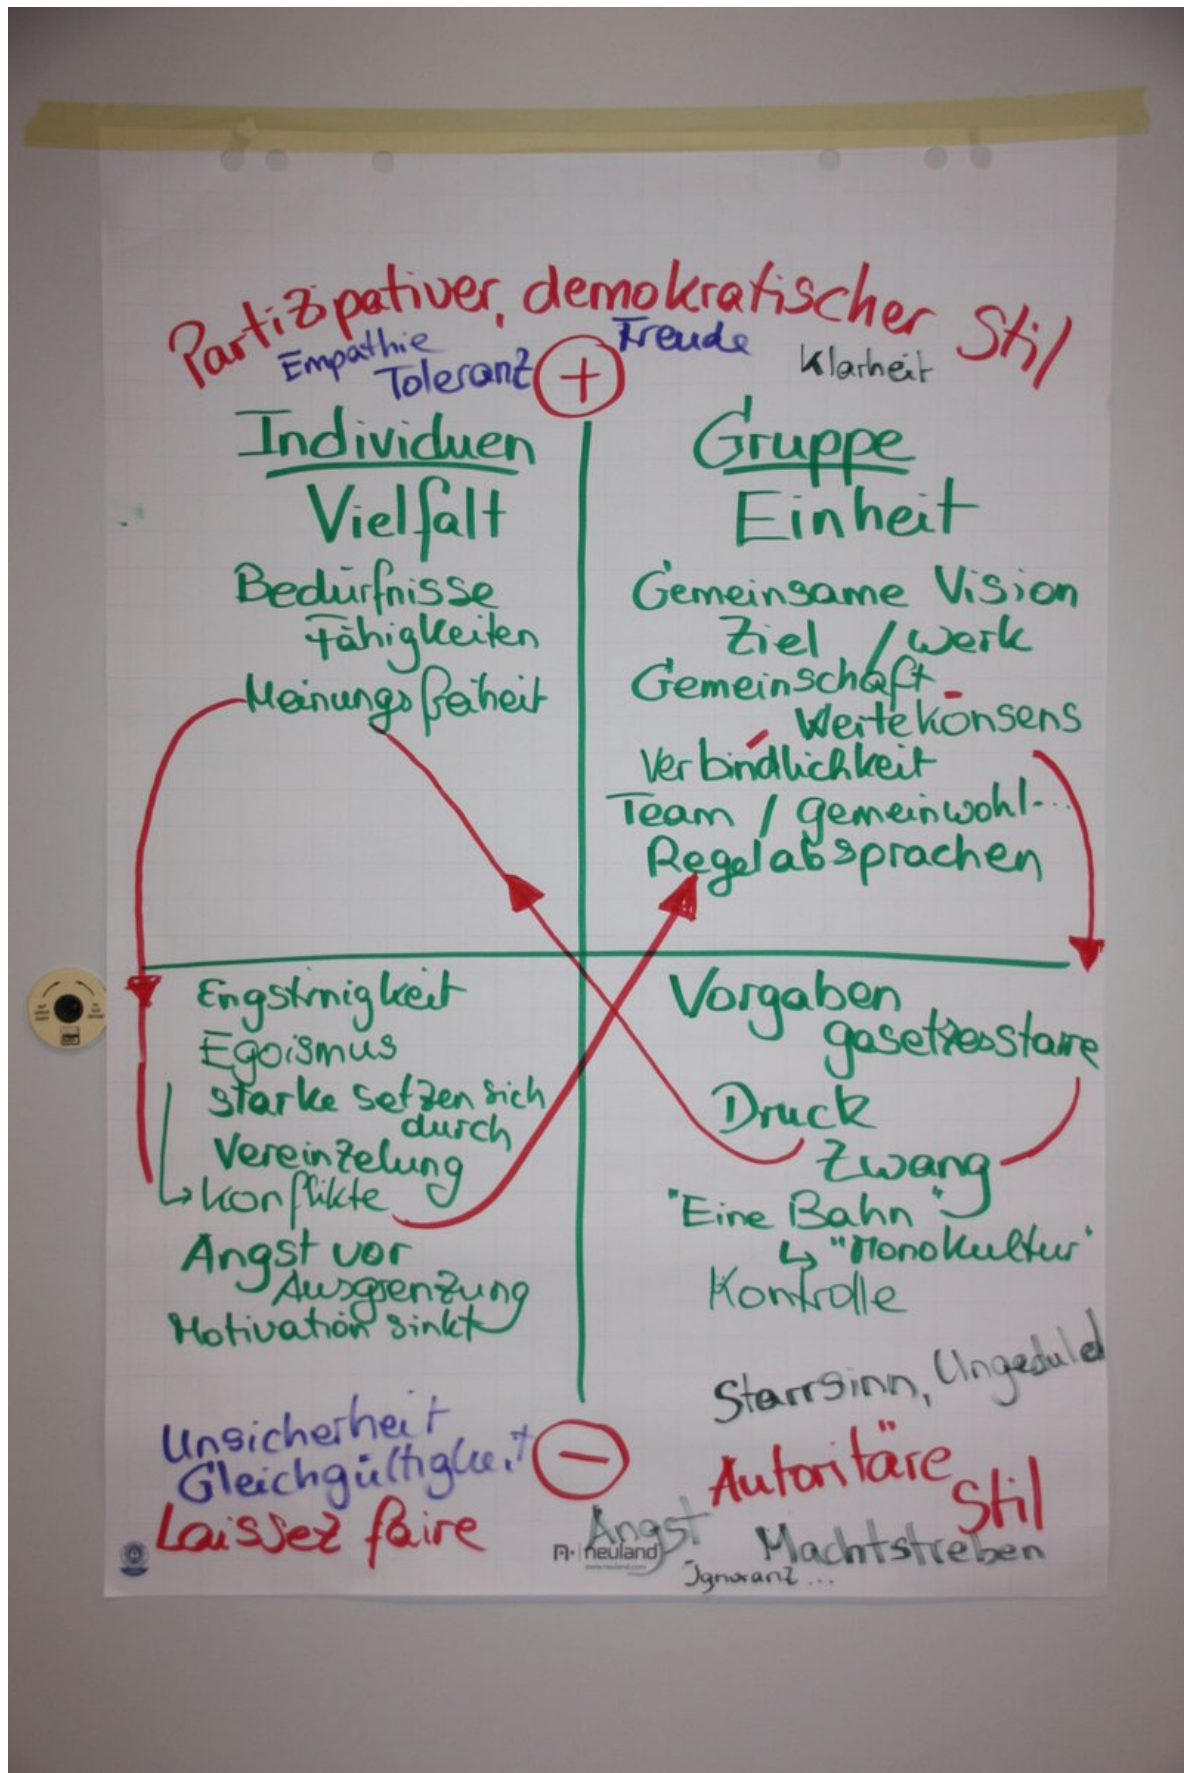 Partizipativer, demokratischer Stil
Empathie
Toleranz
+
Freude
Klarheit
Individuen
Vielfalt
Bedürfnisse
Fähigkeiten
Meinungsfreiheit
Gruppe
Einheit
Gemeinsame Vision
Ziel / Werk
Gemeinschaft
Wertekonsens
Verbindlichkeit
Team / gemeinwohl...
Regelabsprachen
Engstirnigkeit
Egoismus
starke setzen sich
durch
Vereinzelung
↳ Konflikte
Angst vor
Ausgrenzung
Motivation sinkt
Vorgaben
gesetzesstarre
Druck
Zwang
"Eine Bahn"
↳ "Monokultur"
Kontrolle
Unsicherheit
Gleichgültigkeit
Laissez faire
−
Starrsinn, Ungeduld
Autoritäre
Stil
Angst
Machtstreben
Ignoranz...
neuland
www.neuland.com